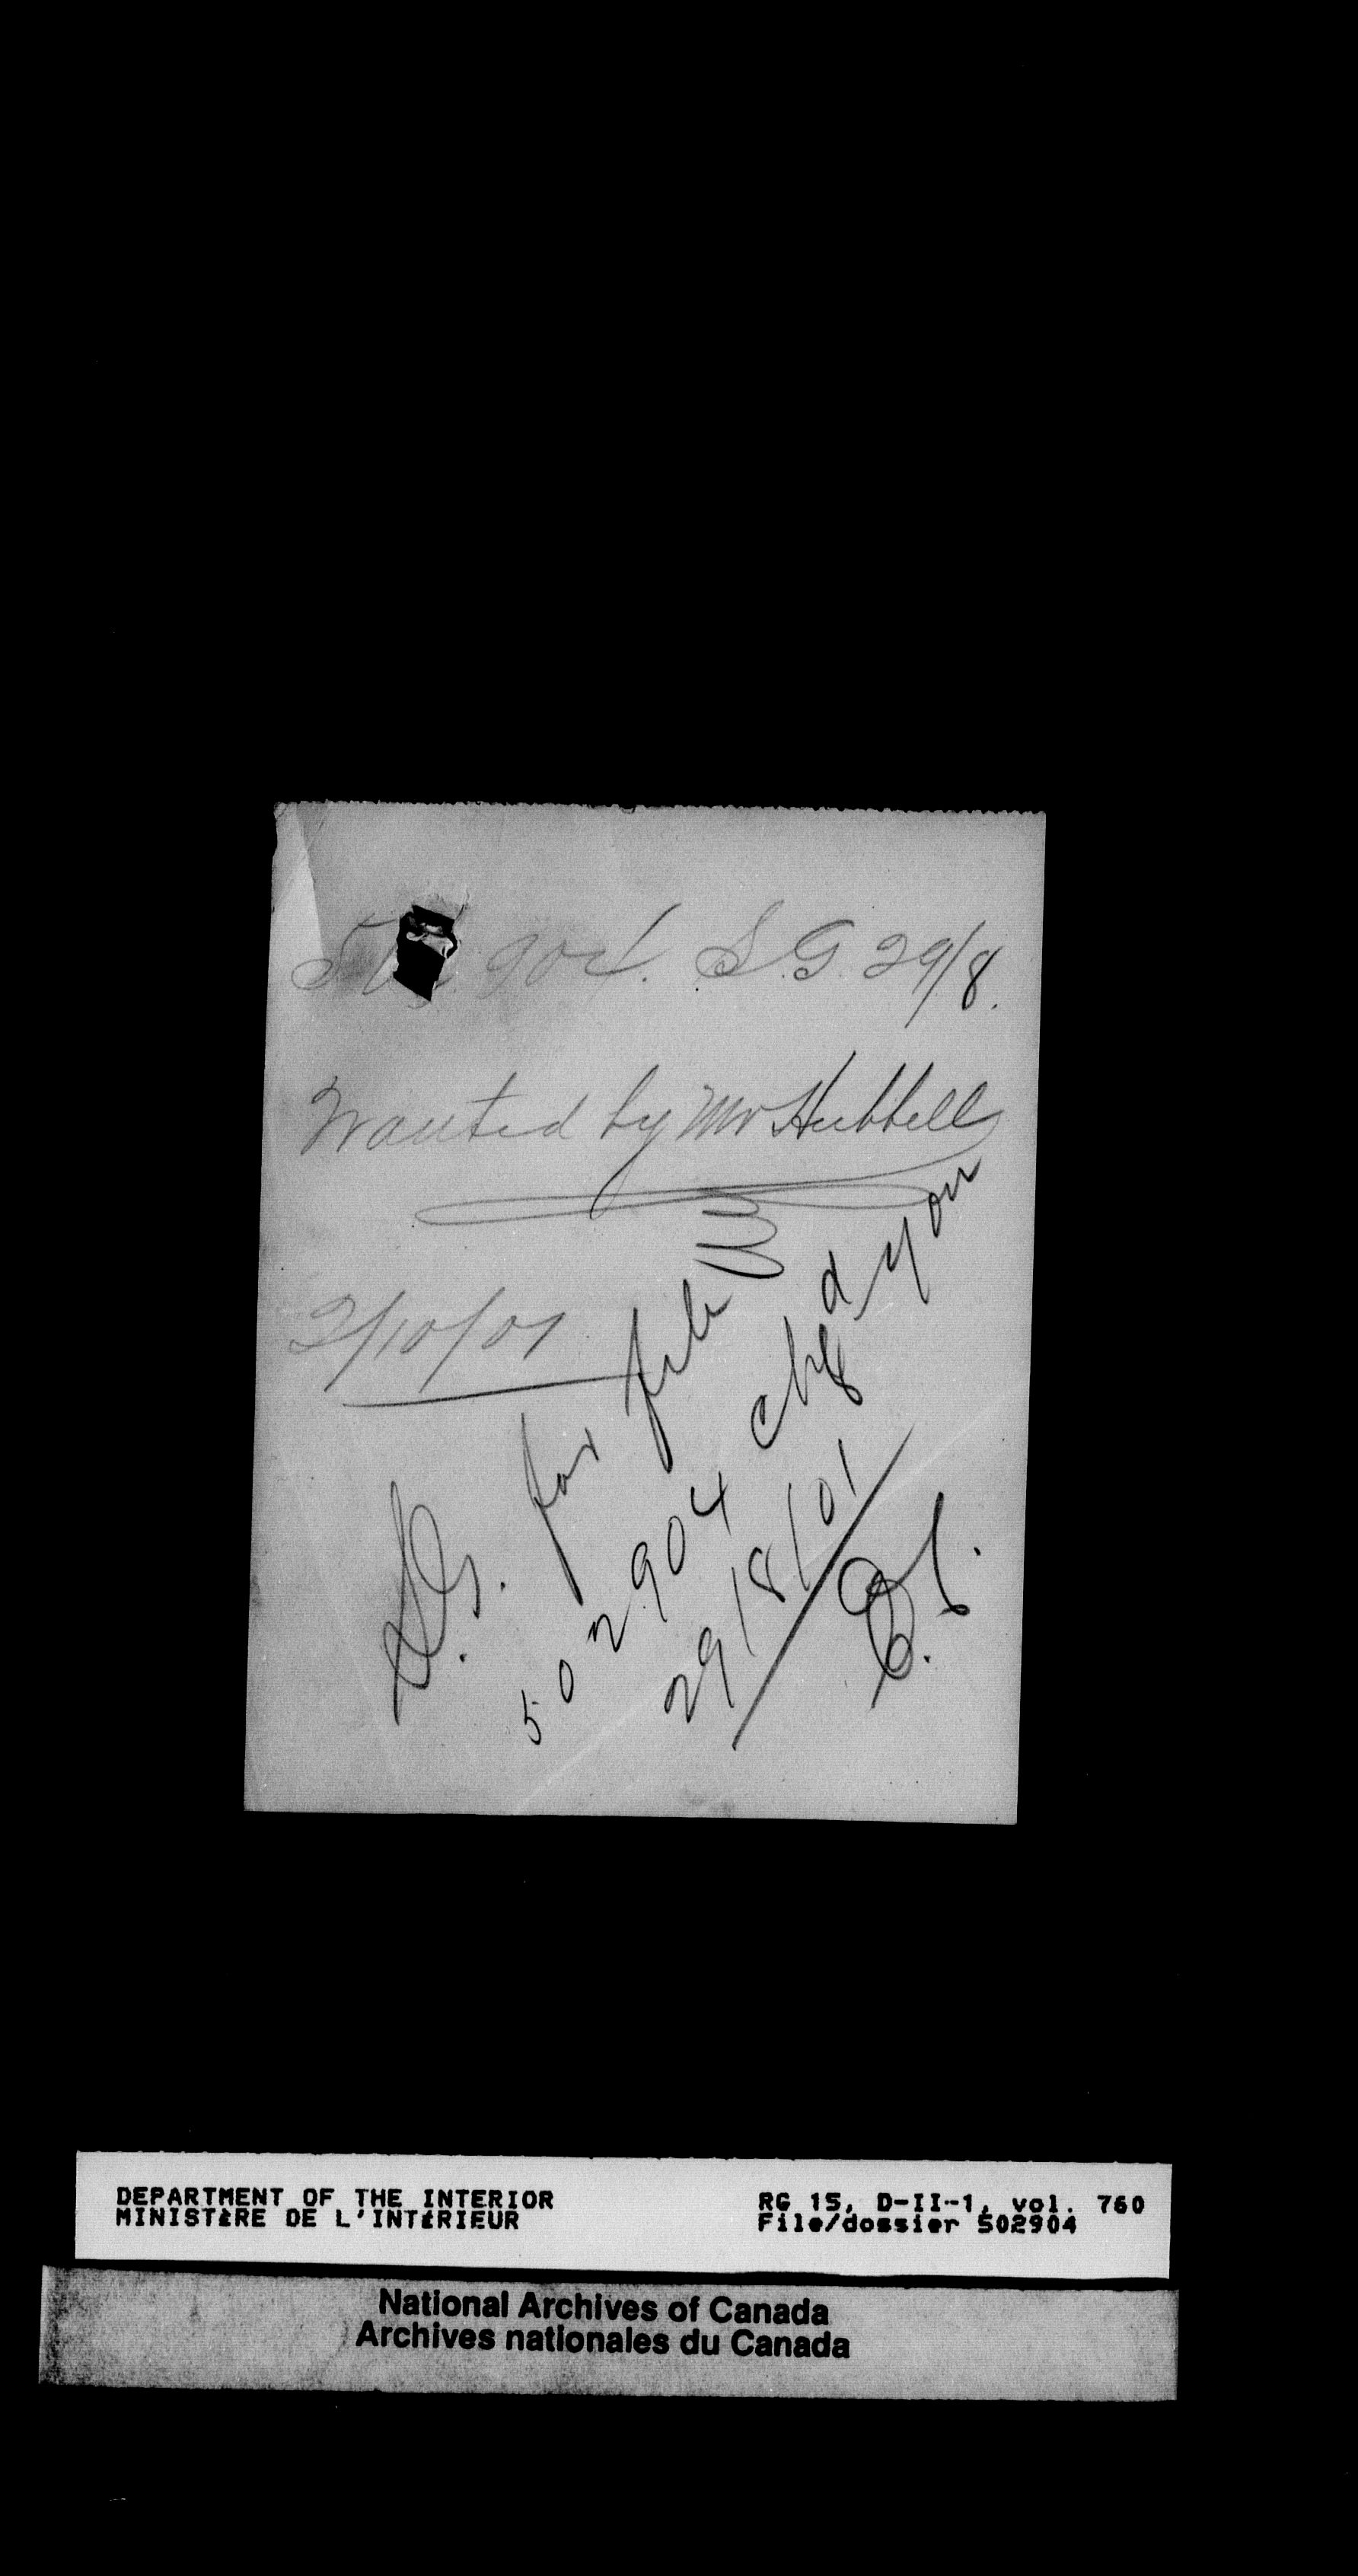 50 904. S.G. 29/8.
Wanted by Mr Hubbell
2/10/01
S.G. for file
502904 chgd you
29/8/01
DEPARTMENT OF THE INTERIOR
MINISTÈRE DE L'INTÉRIEUR
RG 15, D-II-1, vol. 760
File/dossier 502904
National Archives of Canada
Archives nationales du Canada